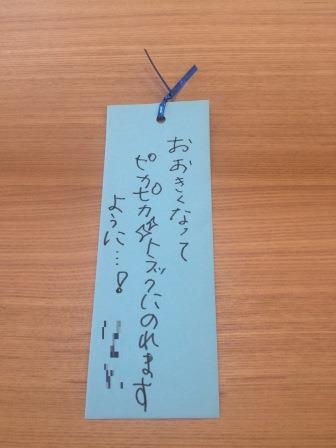 おおきくなって
ピカピカ☆トラックにのれます
ように…!